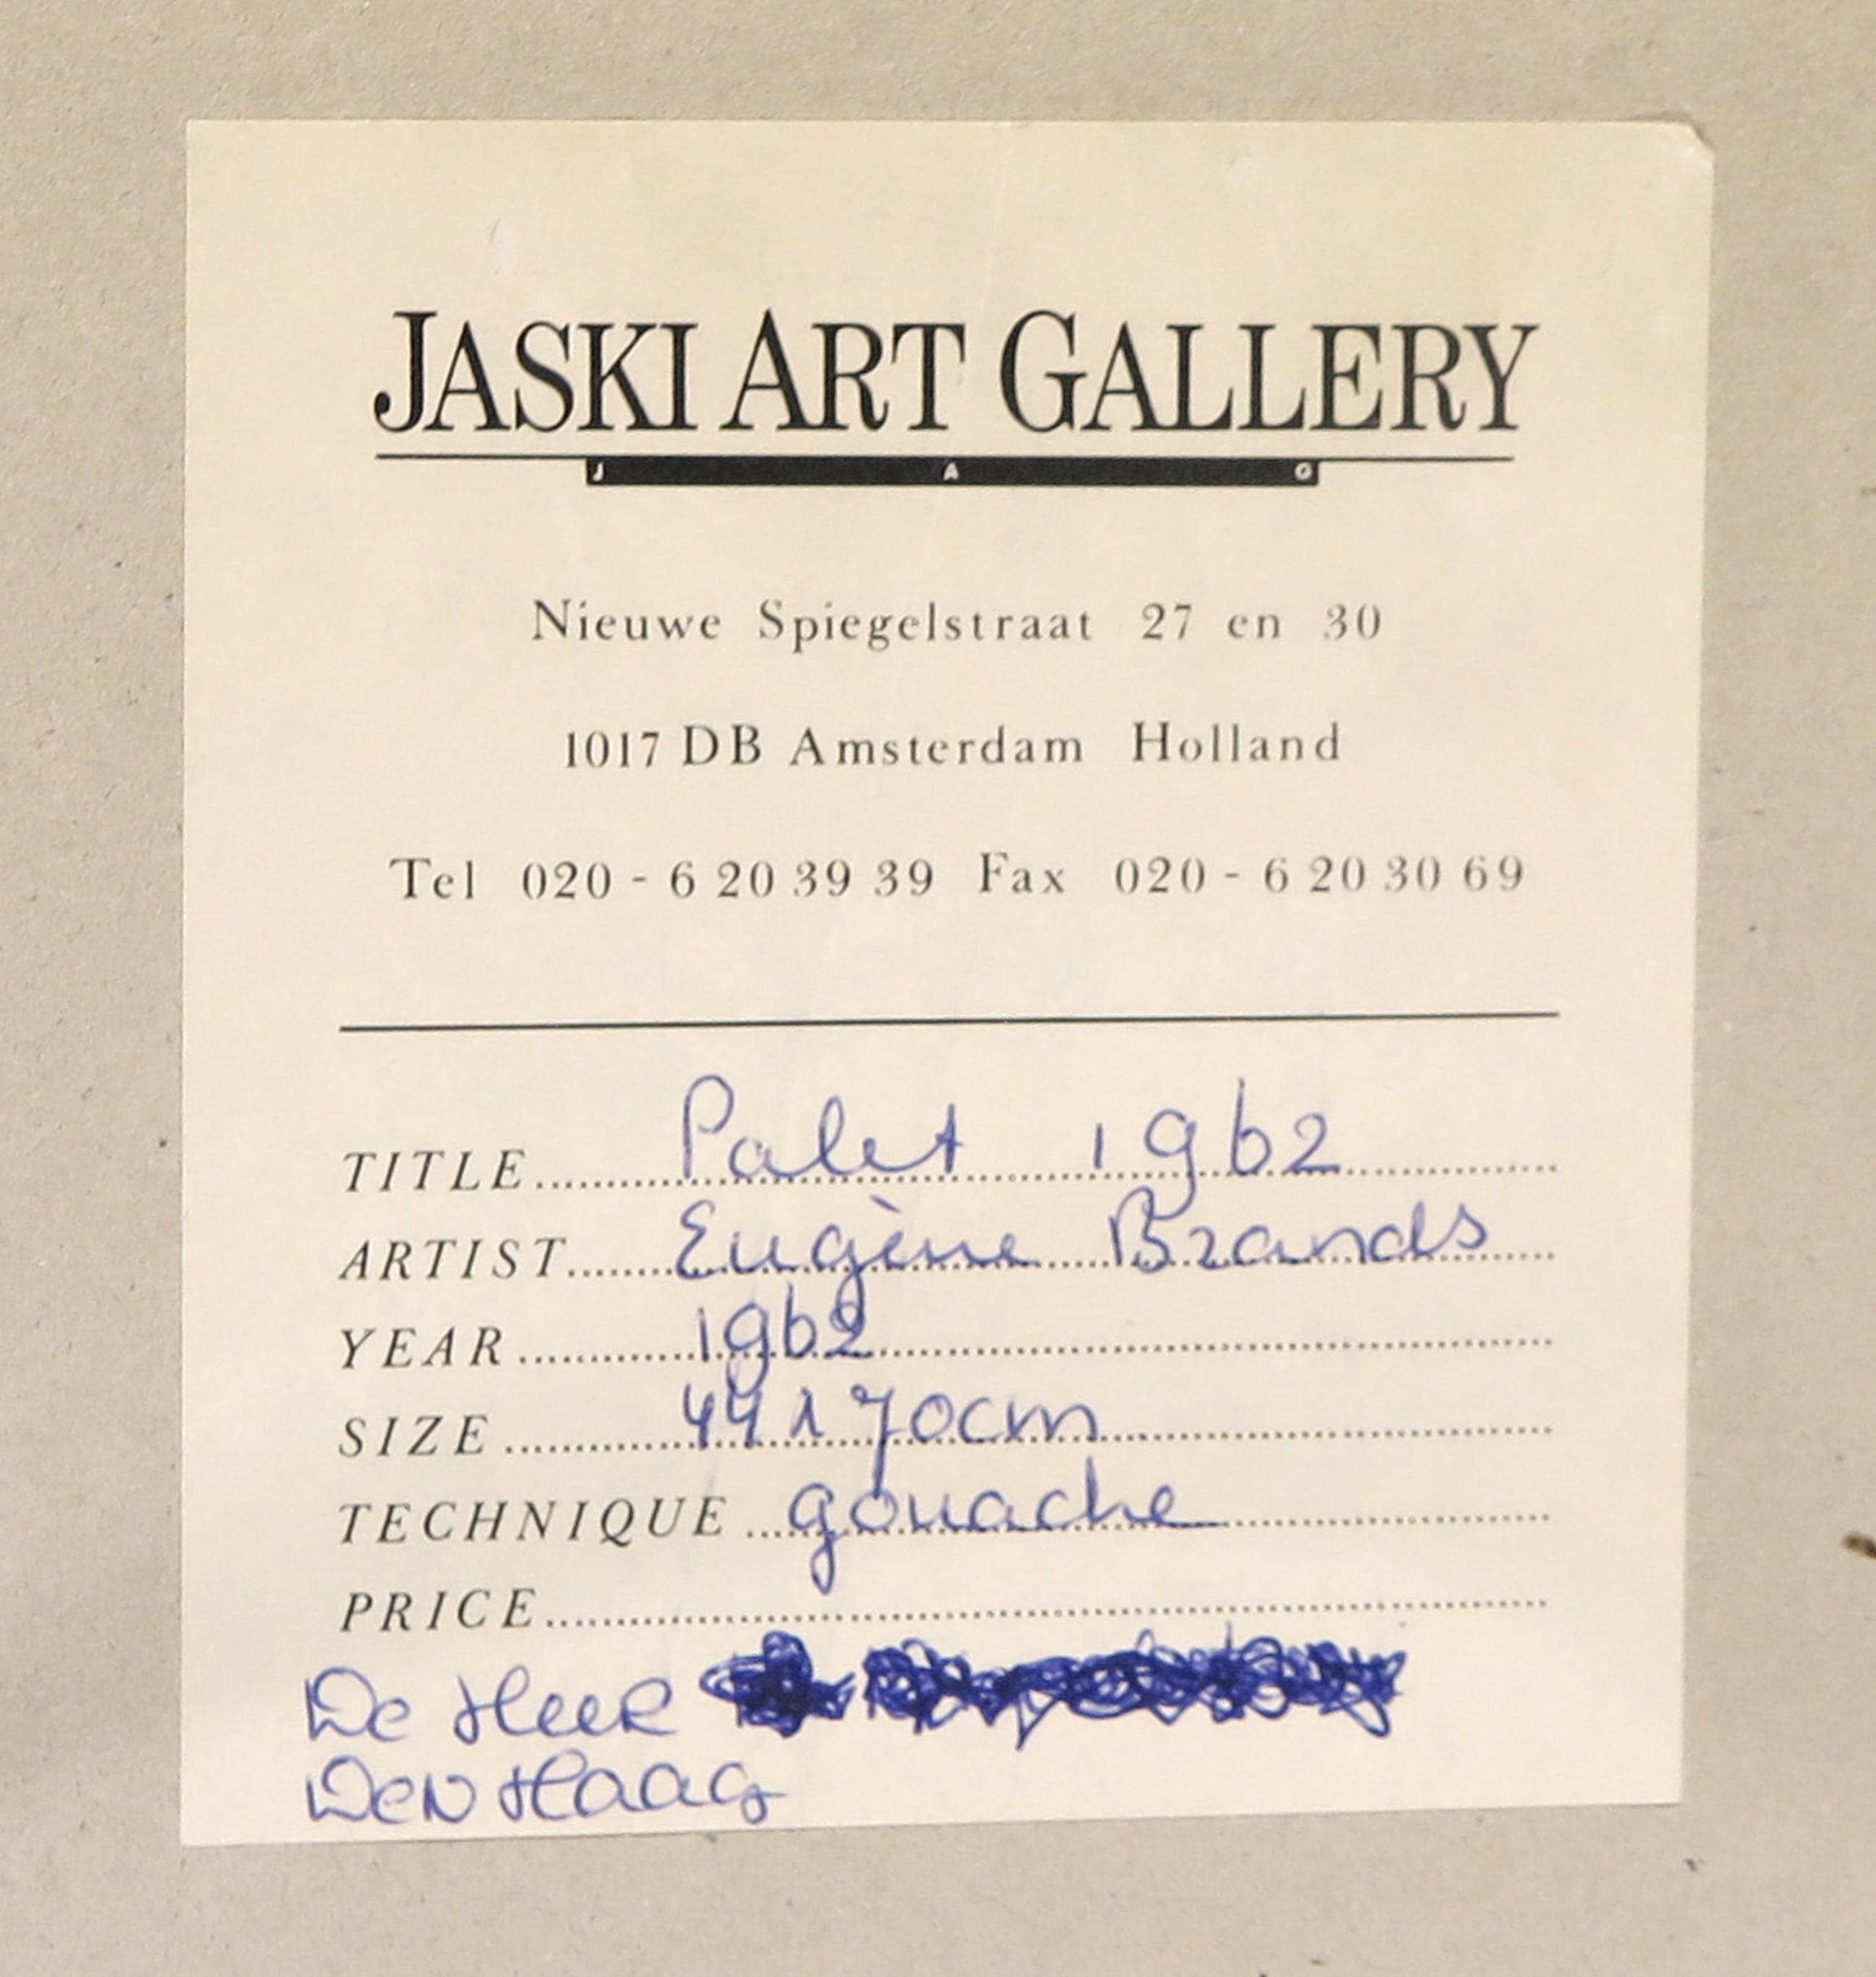 JASKI ART GALLERY
J A G
Nieuwe Spiegelstraat 27 en 30
1017 DB Amsterdam Holland
Tel 020 - 6 20 39 39 Fax 020 - 6 20 30 69
TITLE Palet 1962
ARTIST Eugène Brands
YEAR 1962
SIZE 44 x 70cm
TECHNIQUE gouache
PRICE
De Heer
Den Haag